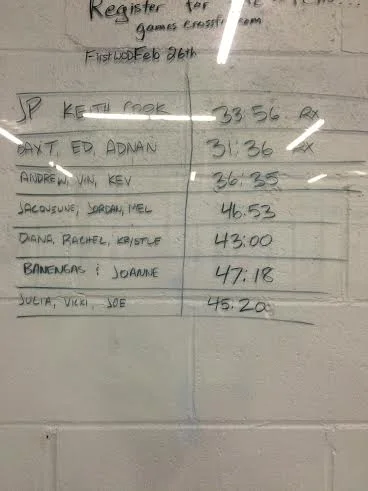 Register for THE
games.crossfit.com
First WOD Feb 26th
JP KEITH COOK 33:56 RX
DAXT, ED, ADNAN 31:36 RX
ANDREW, VIN, KEV 36:35
JACQUELINE, JORDAN, MEL 46.53
DIANA, RACHEL, KRISTLE 43:00
BANENGAS & JOANNE 47:18
JULIA, VICKI, JOE 45:20